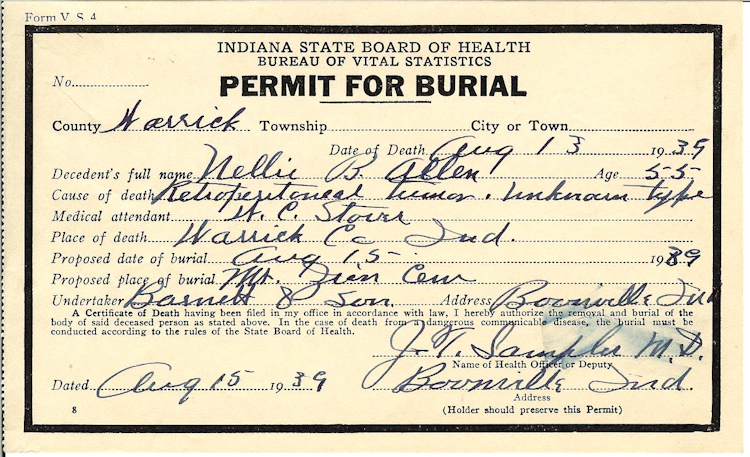 Form V. S. 4
INDIANA STATE BOARD OF HEALTH
BUREAU OF VITAL STATISTICS
No.
PERMIT FOR BURIAL
County Warrick Township City or Town
Date of Death Aug 13 1939
Decedent's full name Nellie B. Allen Age 55
Cause of death Retroperitoneal tumor. Unknown type
Medical attendant W. C. Stover
Place of death Warrick Co Ind.
Proposed date of burial Aug 15 1939
Proposed place of burial Mt. Zion Cem
Undertaker Barnett & Son Address Boonville Ind
A Certificate of Death having been filed in my office in accordance with law, I hereby authorize the removal and burial of the
body of said deceased person as stated above. In the case of death from a dangerous communicable disease, the burial must be
conducted according to the rules of the State Board of Health.
J. T. Samples M.D.
Name of Health Officer or Deputy
Dated Aug 15 1939 Boonville Ind.
Address
8 (Holder should preserve this Permit)